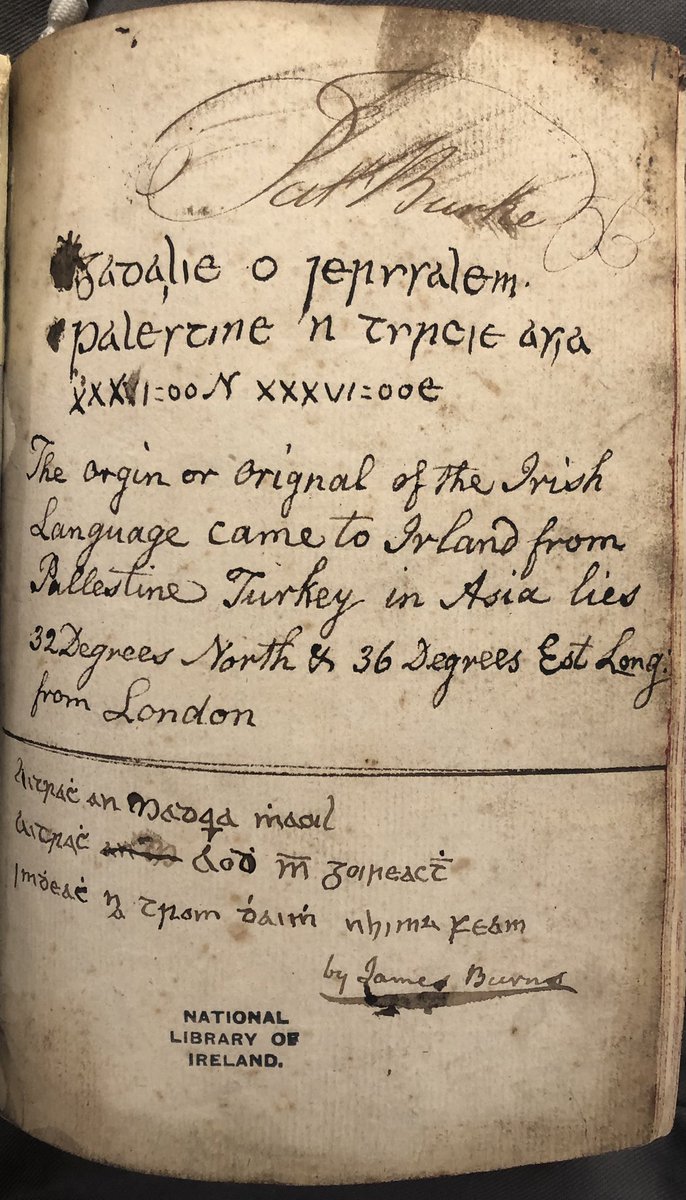 Patk Burke
ᵹadalie o jerusalem.
palestine 'n turcie asia
XXXVI=00N XXXVI=00E
The orgin or orignal of the Irish
Language came to Irland from
Pallestine Turkey in Asia lies
32 Degrees North & 36 Degrees Est Long:
from London
aitraċ an Madra ṁaoil
aitraċ Aoḋ
imḋeaċ trom ḋaiṁ
by James Burns
NATIONAL
LIBRARY OF
IRELAND.